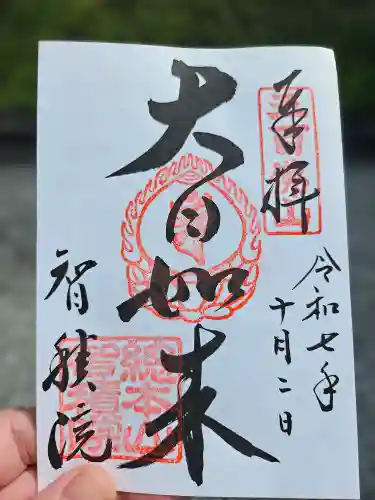 奉拝
令和七年
十月二日
大日如来
智積院
総本山
智積院